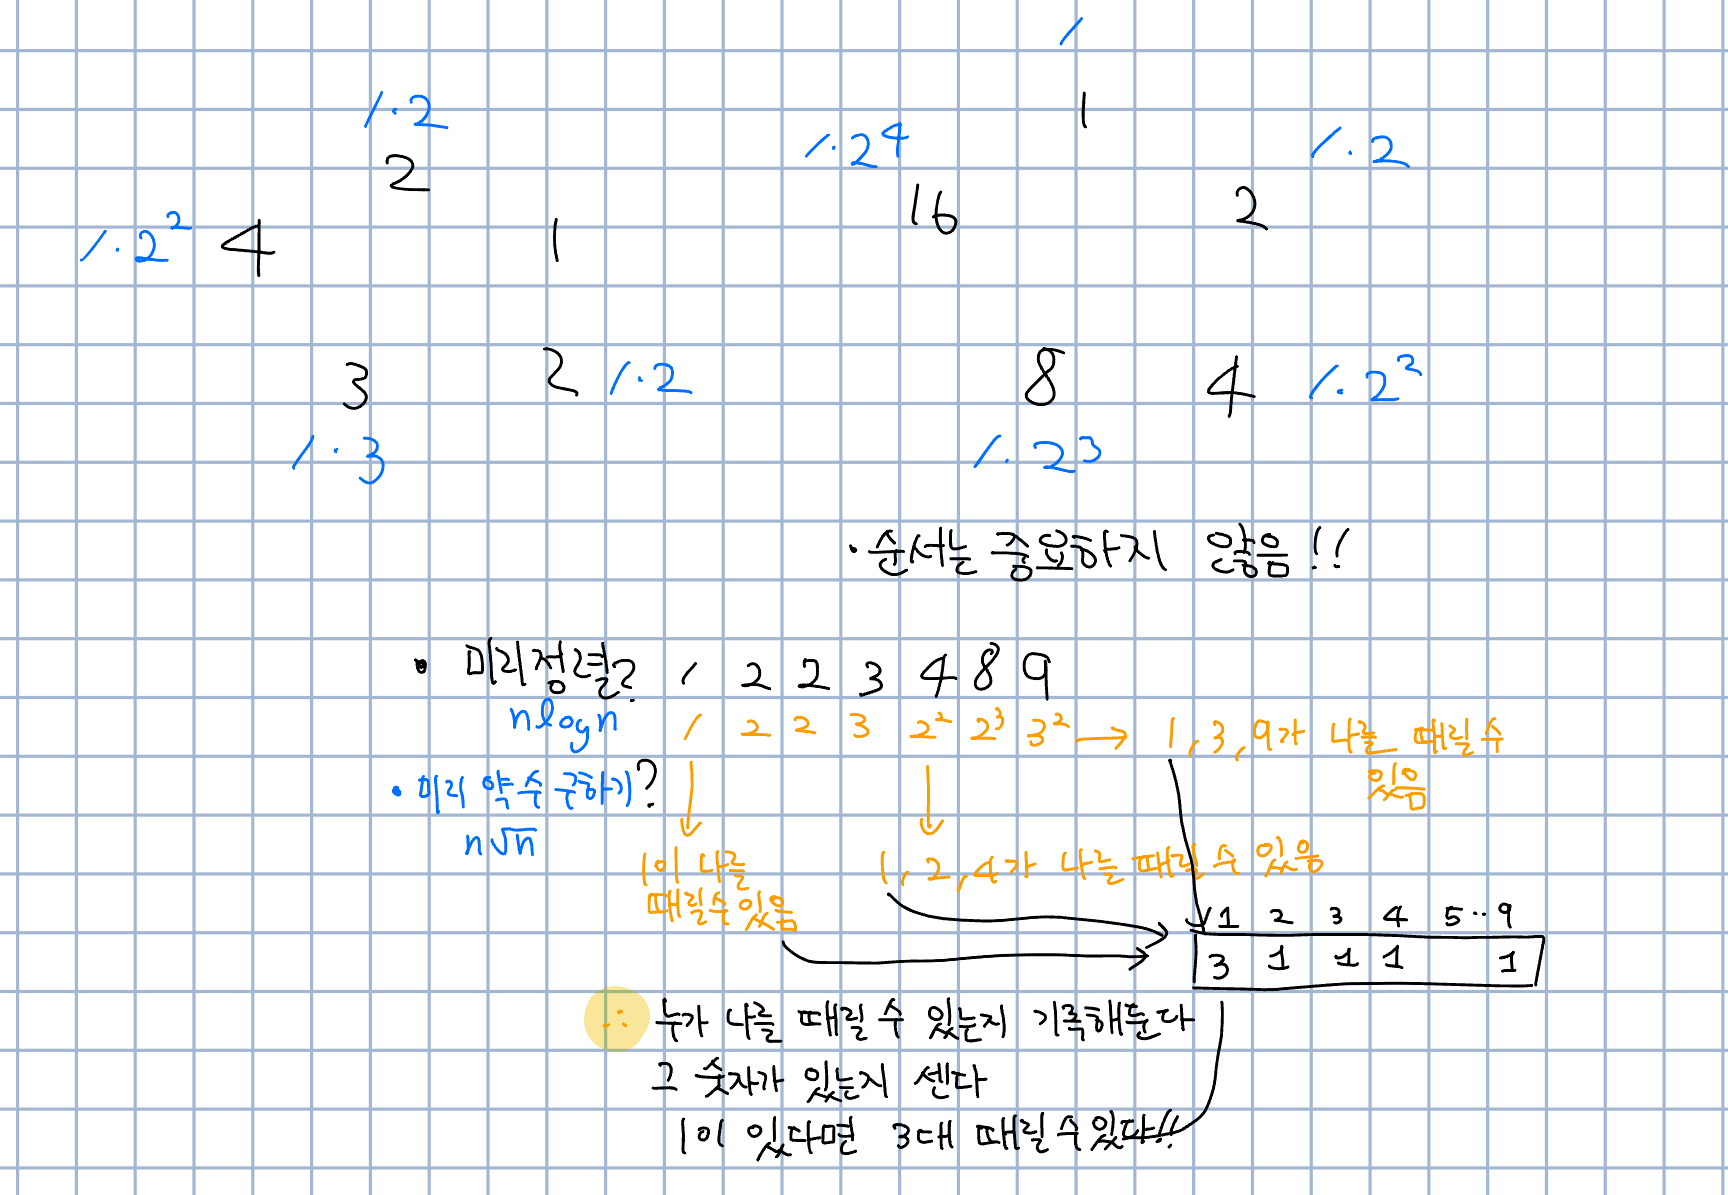 1
1·2
1·2⁴
1
1·2
2
16
2
1·2²
4
1
3
2
1·2
8
4
1·2²
1·3
1·2³
· 순서는 중요하지 않음!!
• 미리정렬? 1 2 2 3 4 8 9
nlogn
1 2 2 3 2² 2³ 3² → 1, 3, 9가 나를 때릴 수
있음
• 미리 약수 구하기?
n√n
1이 나를
때릴수 있음
1, 2, 4가 나를 때릴 수 있음
1 2 3 4 5 ·· 9
3 1 1 1 1
∴ 누가 나를 때릴 수 있는지 기록해둔다
그 숫자가 있는지 센다
1이 있다면 3대 때릴 수 있다!!